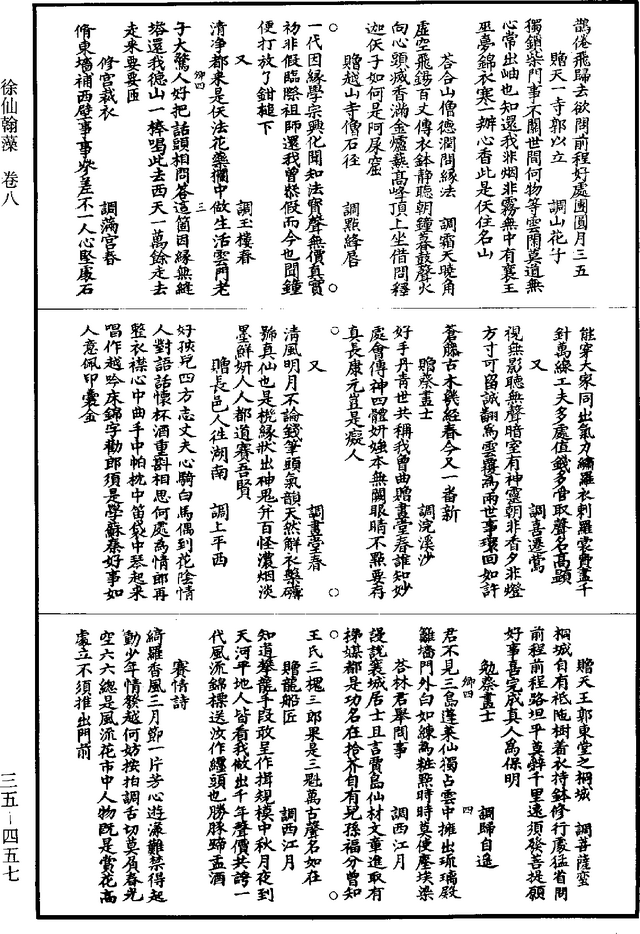 鵲倦飛歸去欲問前程好處團圓月三五
贈天一寺郭以立　調山花子
獨鎖柴門事不關世間何物等雲閑莫道無
心常出岫也知還我非烟非霧無中有襄王
巫夢錦衣寒一瓣心香此是伏住名山
荅合山僧德潤問緣法　調霜天曉角
虛空飛錫百丈傳衣鉢靜聽朝鐘暮鼓聲火
向心頭滅香滿金爐爇高峰頂上坐借問釋
迦矢子如何是阿屎窟
贈越山寺僧石徑　調點絳唇
一代因緣學宗興化聞知法寶聲無價真實
初非假臨際祖師還我曾燃假而今也聞鐘
便打放了鉗槌下
又　調玉樓春
清淨都來是伏法花藥欄中做生活雲門老
子大驚人好把話頭相問荅這箇因緣無縫
塔還我德山一棒喝此去西天一萬餘走去
走來要要匝
修宮裁衣　調滿宮春
脩東墻補西壁事事參差不一人心堅處石
能穿大家同出氣力繡羅衣刺羅裳費盡千
針萬線工夫多處值錢多管取聲名高顯
又　調喜遷鶯
視無影聽無聲暗室有神靈朝非香夕非燈
方寸可留誠翻為雲覆為雨世事環回如許
蒼藤古木幾經春今又一番新
贈蔡畫士　調浣溪沙
好手丹青世共稱我曾曲贈畫堂春誰知妙
處會傳神四體妍媸本無闕眼睛不點要存
真長康元豈是癡人
又　調畫堂春
清風明月不論錢筆頭氣韻天然解衣槃礴
號真仙也是機緣狀出神鬼并百怪濃烟淡
墨鮮妍人人都道賽吾賢
贈長邑人往湖南　調上平西
好挾兒四方志丈夫心騎白馬偶到花陰情
人對語話懷杯酒重斟相思何處為情郎再
整衣襟心中曲手中帕枕中笛袋中琴起來
唱作越吟床錦字勸郎須是學蘇秦好事如
人意佩印囊金
贈天王郭東堂之桐城　調菩薩蠻
桐城自有祗陁樹着衣持鉢修行處往省問
前程前程路坦平莫辭千里遠須發菩提願
好事喜完成真人為保明
勉蔡畫士　調歸自遙
君不見三島蓬萊仙獨占雲中擁出琉璃殿
籬墻門外白如練為粧點時時莫使塵埃染
荅林君舉問事　調西江月
謾說襄城居士且言賈島仙材文章進取有
梯媒都是功名在拾芥自有兒孫福分曾知
王氏三槐三郎果是三魁萬古聲名如在
贈龍船匠　調西江月
知道攀龍手段敢呈作揖規模中秋月夜到
天河平地人皆看我做出千年聲價共誇一
代風流錦標送汝作纏頭也勝豚蹄盂酒
賽情詩
綺羅香風三月節一片芳心遊漾難禁得起
動少年情發越何妨按拍調舌切莫屑春光
空六六總是風流花市中人物既是賞花高
處立不須推出門前
徐仙翰藻　卷八
三五—四五七
卿四
三
卿四
四